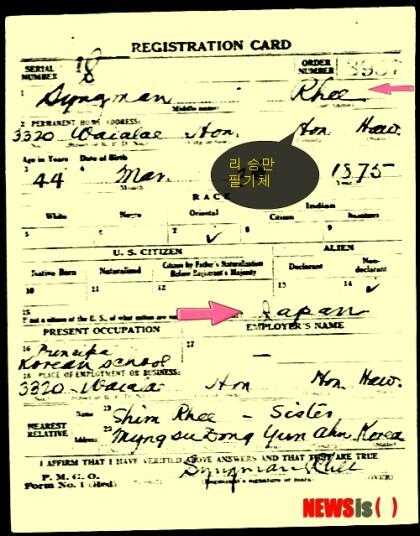 REGISTRATION CARD
SERIAL NUMBER 18 ORDER NUMBER
1 Syngman Rhee
Middle name
2 PERMANENT HOME ADDRESS:
3320 Waialae Hon. Hon. Haw.
리 승만
필기체
Age in Years Date of Birth
3 44 4 Mar. 1875
Month
RACE
White Negro Oriental Indian
Citizen Noncitizen
5 6 7 ✓ 8 9
U. S. CITIZEN ALIEN
Native Born Naturalized Citizen by Father's Naturalization Before Registrant's Majority Declarant Non-declarant
10 11 12 13 14 ✓
15 If not a citizen of the U. S., of what nation are Japan
PRESENT OCCUPATION EMPLOYER'S NAME
16 17 —
Korean School
18 PLACE OF EMPLOYMENT OR BUSINESS:
3320 Hon Hon. Haw.
NEAREST RELATIVE Name 19 Shim Rhee - Sister
Address 20 Korea
I AFFIRM THAT I HAVE VERIFIED ABOVE ANSWERS AND THAT THEY ARE TRUE
P. M. G. O.
Form No. 1 (Red) Syngman Rhee
(Registrant's signature or mark) (OVER)
NEWSis( )